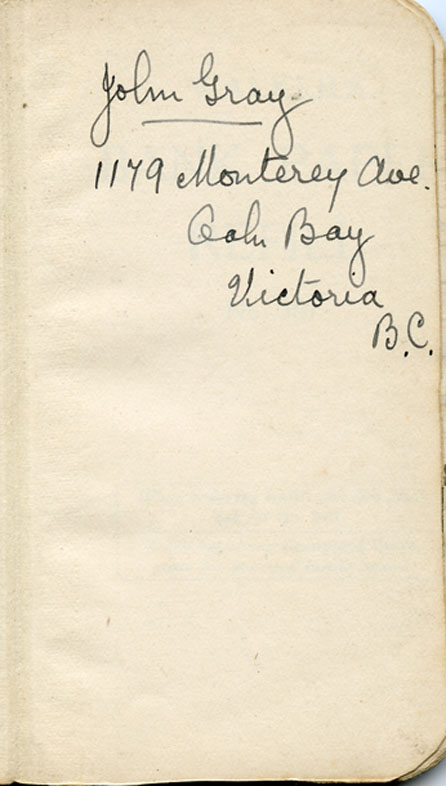 John Gray
1179 Monterey Ave.
Oak Bay
Victoria
B.C.